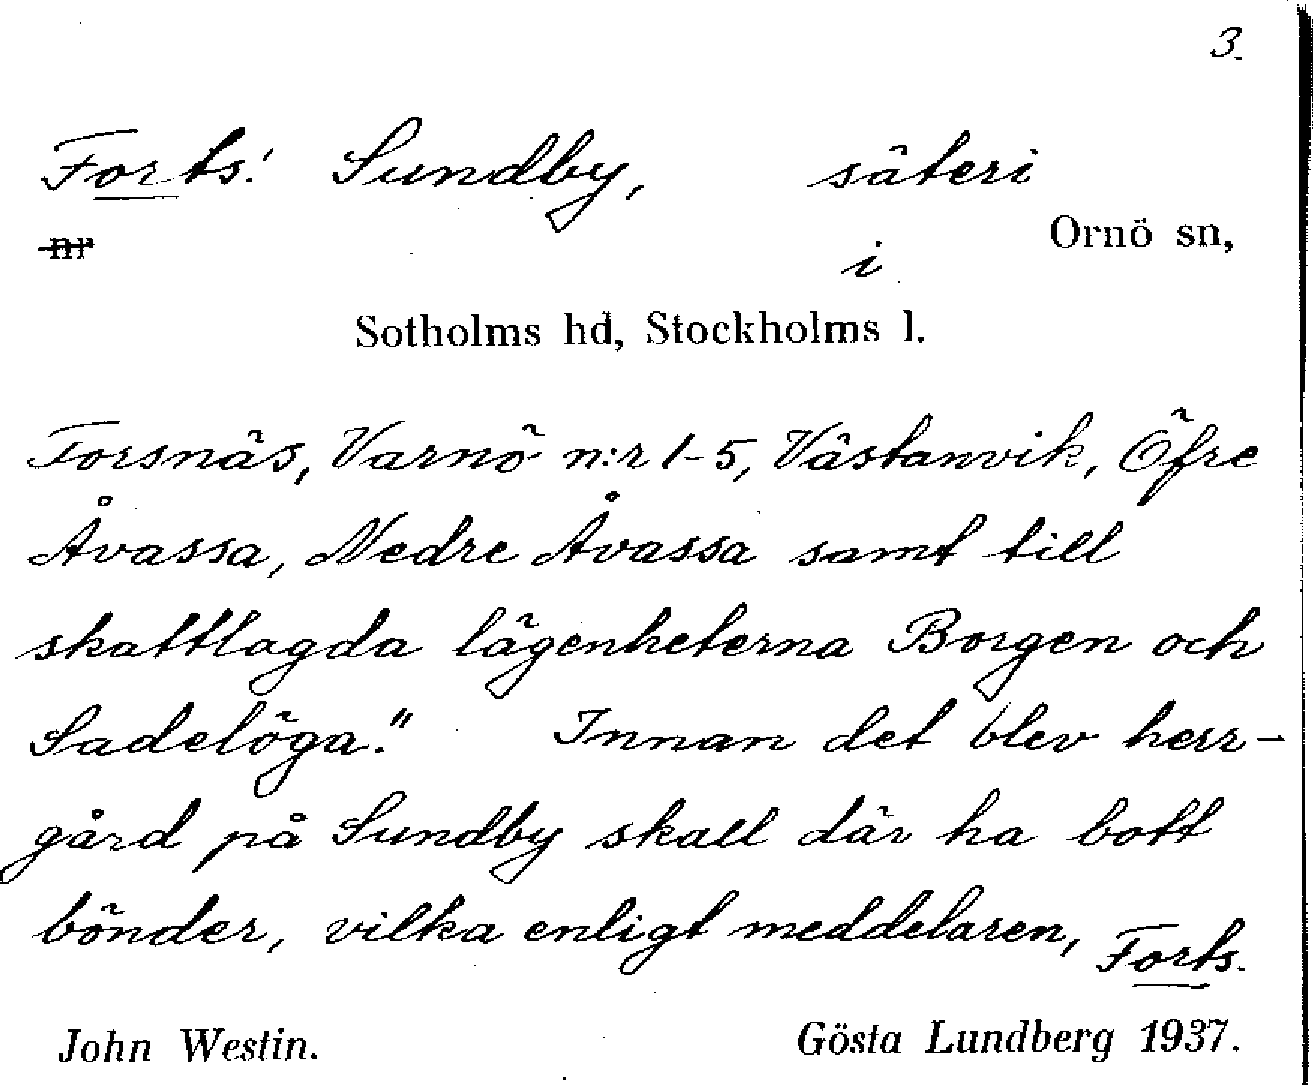 3.
Forts! Sundby, säteri
nr i Ornö sn,
Sotholms hd, Stockholms l.
Forsnäs, Varnö n:r 1-5, Västanvik, Öfre
Åvassa, Nedre Åvassa samt till
skattlagda lägenheterna Borgen och
Sadelöga." Innan det blev herr-
gård på Sundby skall där ha bott
bönder, vilka enligt meddelaren, Forts.
John Westin. Gösta Lundberg 1937.